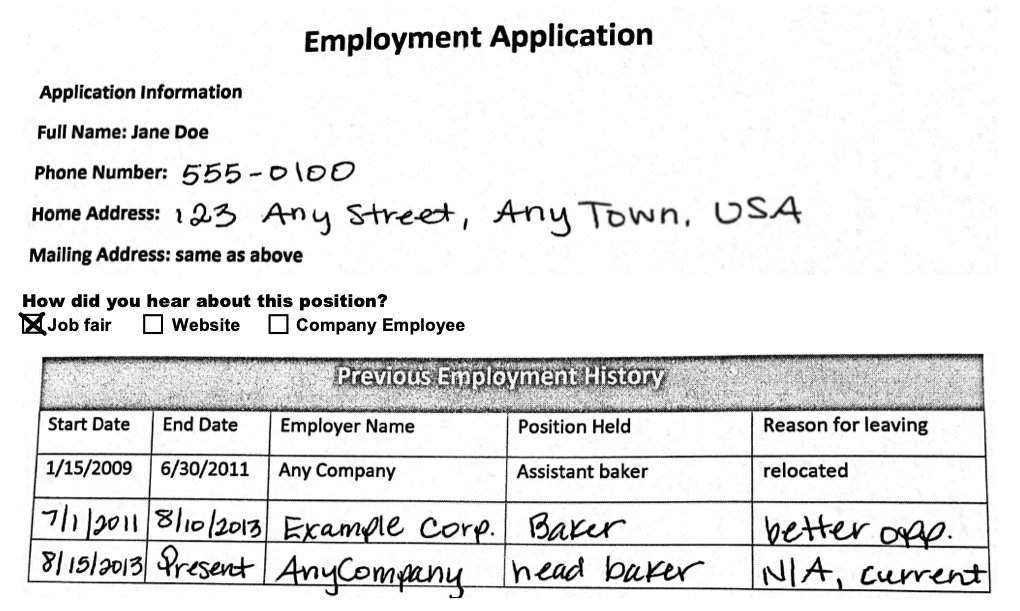 Employment Application
Application Information
Full Name: Jane Doe
Phone Number: 555-0100
Home Address: 123 Any Street, Any Town, USA
Mailing Address: same as above
How did you hear about this position?
Job fair Website Company Employee
Previous Employment History
Start Date End Date Employer Name Position Held Reason for leaving
1/15/2009 6/30/2011 Any Company Assistant baker relocated
7/1/2011 8/10/2013 Example Corp. Baker better opp.
8/15/2013 Present AnyCompany head baker N/A, current